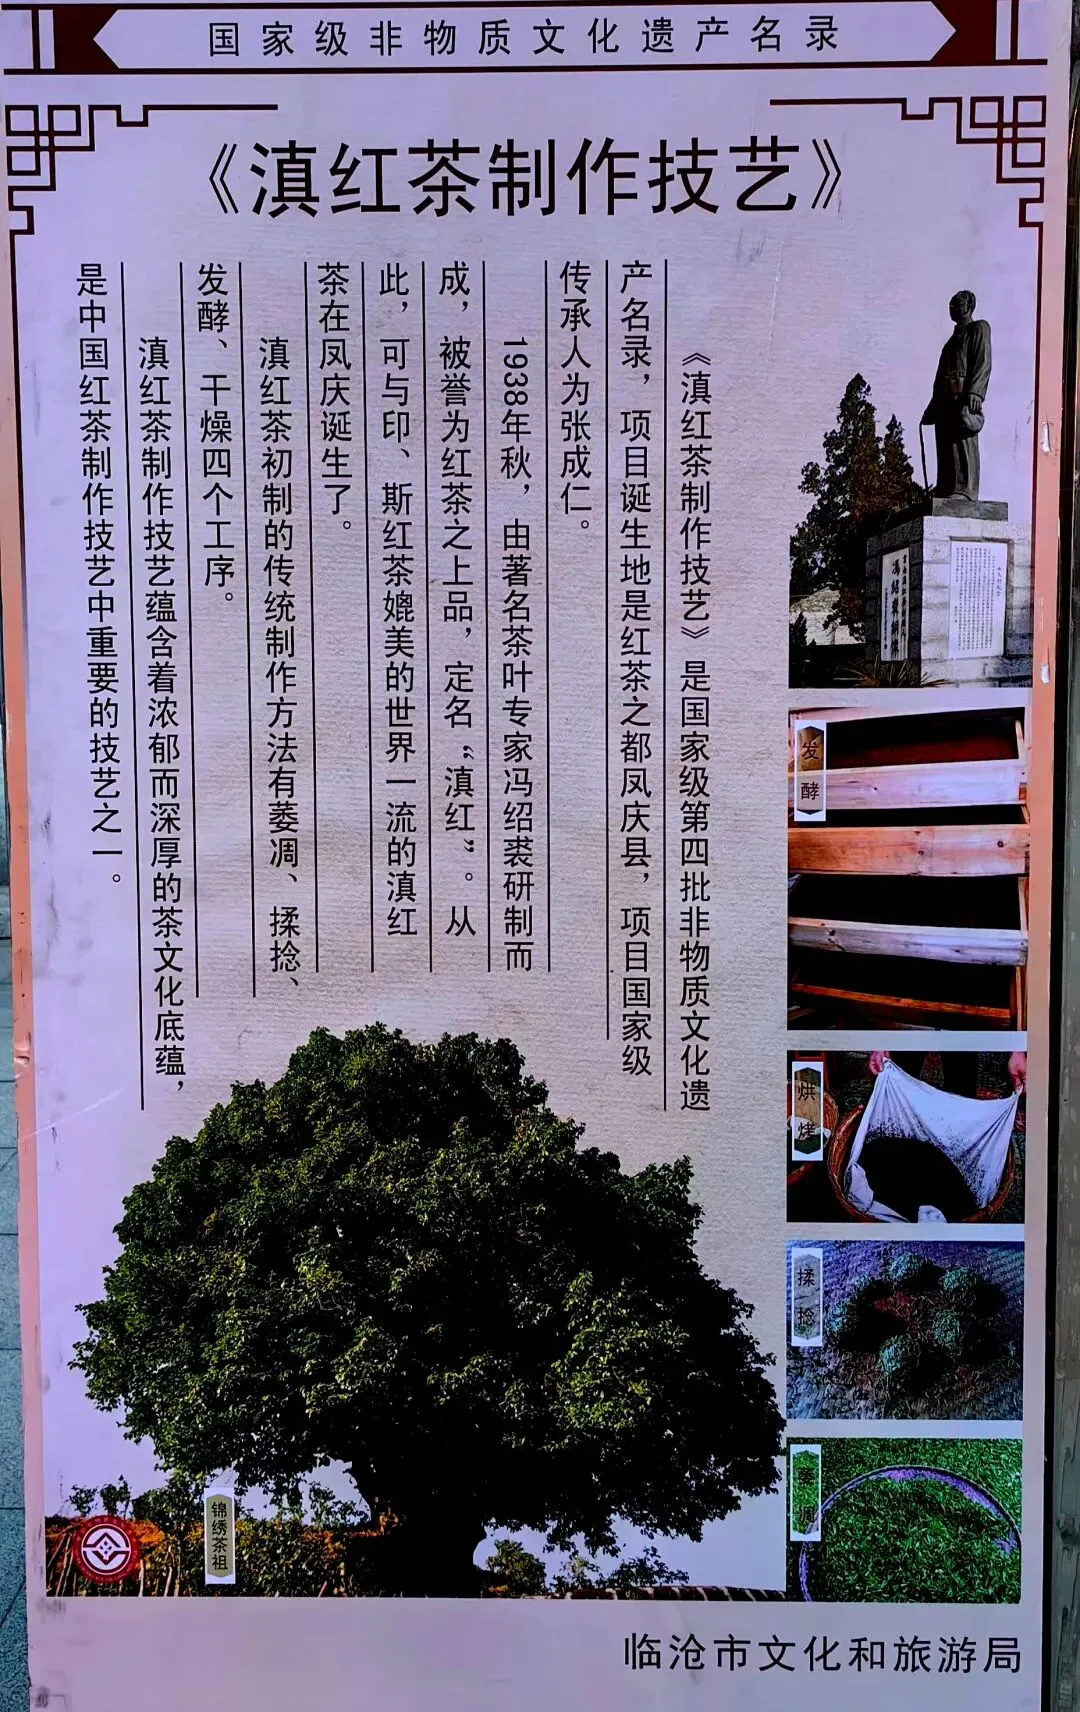 国家级非物质文化遗产名录
《滇红茶制作技艺》
《滇红茶制作技艺》是国家级第四批非物质文化遗
产名录，项目诞生地是红茶之都凤庆县，项目国家级
传承人为张成仁。
1938年秋，由著名茶叶专家冯绍裘研制而
成，被誉为红茶之上品，定名“滇红”。从
此，可与印、斯红茶媲美的世界一流的滇红
茶在凤庆诞生了。
滇红茶初制的传统制作方法有萎凋、揉捻、
发酵、干燥四个工序。
滇红茶制作技艺蕴含着浓郁而深厚的茶文化底蕴，
是中国红茶制作技艺中重要的技艺之一。
发酵
烘烤
揉捻
萎凋
锦绣茶祖
临沧市文化和旅游局